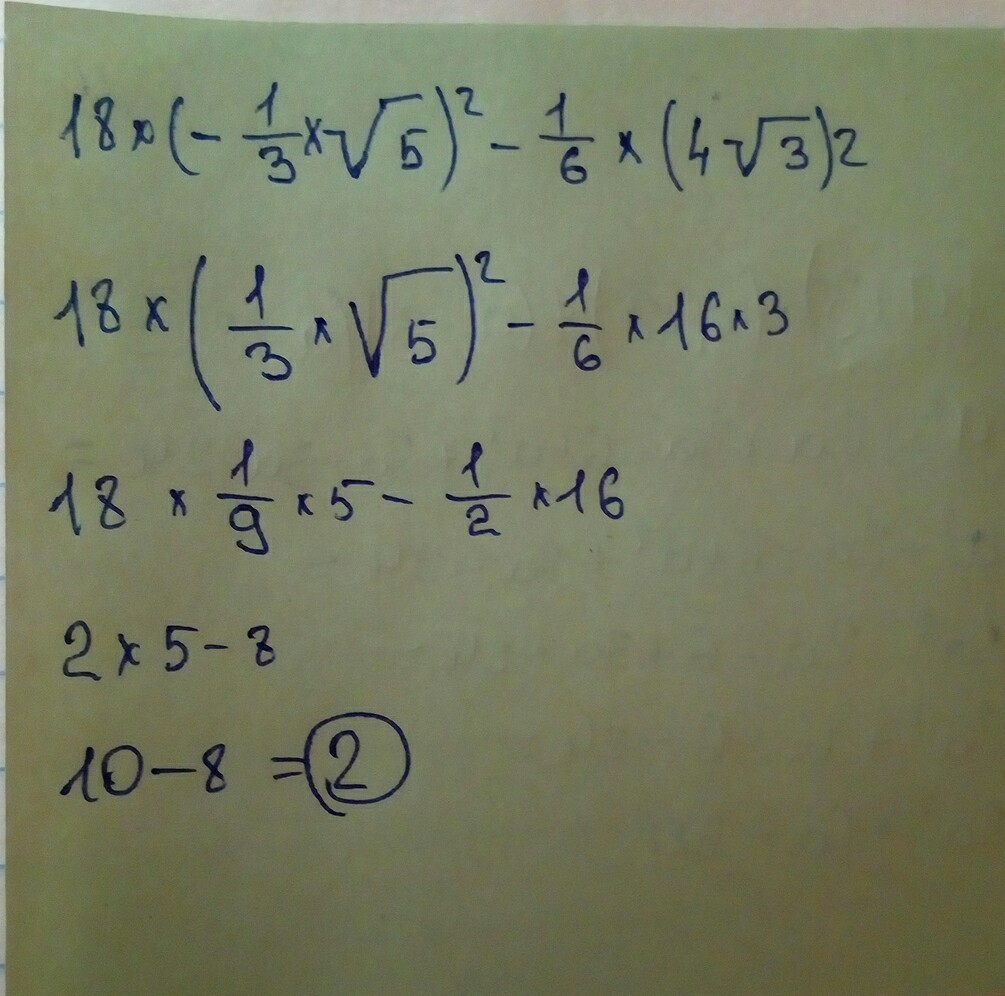 18 × (- 1/3 × √5)² - 1/6 × (4√3)2
18 × (1/3 × √5)² - 1/6 × 16 × 3
18 × 1/9 × 5 - 1/2 × 16
2 × 5 - 8
10 - 8 = 2